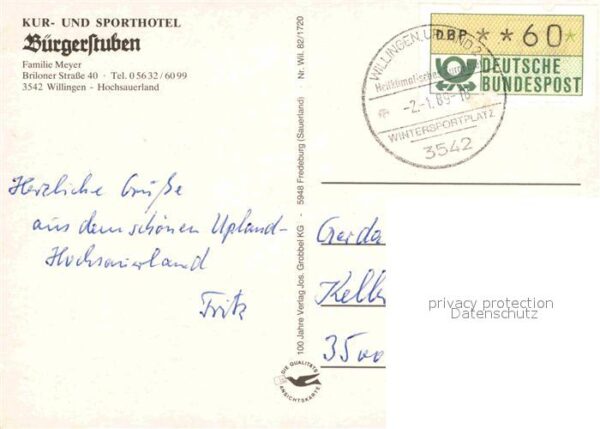 KUR- UND SPORTHOTEL
Bürgerstuben
Familie Meyer
Briloner Straße 40 · Tel. 0 56 32 / 60 99
3542 Willingen - Hochsauerland
Herzliche Grüße
aus dem schönen Upland-
Hochsauerland
Fritz
100 Jahre Verlag Jos. Grobbel KG · 5948 Fredeburg (Sauerland) · Nr. Wil. 82/1720
DIE QUALITÄTS
ANSICHTSKARTE
WILLINGEN, UPLAND
Heilklimatischer
-2.-1.89-18
WINTERSPORTPLATZ
3542
DBP * * 60 *
DEUTSCHE
BUNDESPOST
Gerda
Kell
3500
privacy protection
Datenschutz